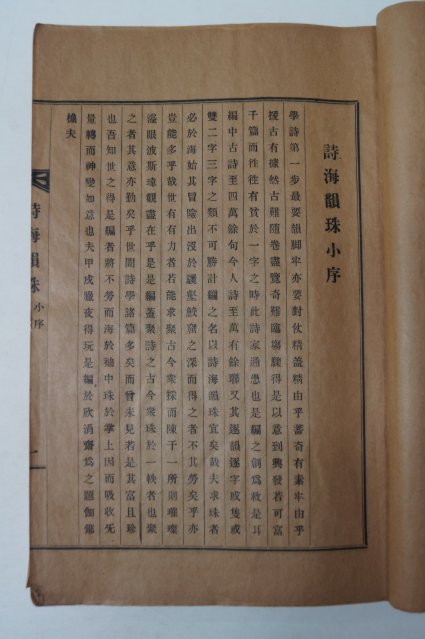 詩海韻珠小序
學詩第一步最要韻脚牢亦要對仗精盖精由乎蓄奇有素牢由乎
援古有據然古難隨卷盡覽奇難臨塲驟得是以意到興發若可富
千篇而徃徃有貧於一字之時此詩家通患也是編之創爲救是耳
編中古詩至四萬餘句今人詩至萬有餘聯又其逐韻逐字或隻或
雙二字三字之類不可勝計編之名以詩海韻珠宜矣哉夫求珠者
必於海始其冒險出沒於巖壑鮫窟之深而得之者不其勞乎亦
豈能多乎哉世有有力者若能求聚古今衆採而陳于一所則璀璨
溢眼波斯瓊觀盡在乎是是編盖聚詩之古今衆珠於一帙者也聚
之者其意亦勤矣乎世間詩學諸篇多矣而曾未見若是其富且珍
也吾知世之得是編者將不勞而海於袖中珠於掌上因而吸收旡
量轉而神變如意也夫甲戌臘夜得玩是編於欣涓齋爲之題伽倻
樵夫
詩海韻珠
小序
一